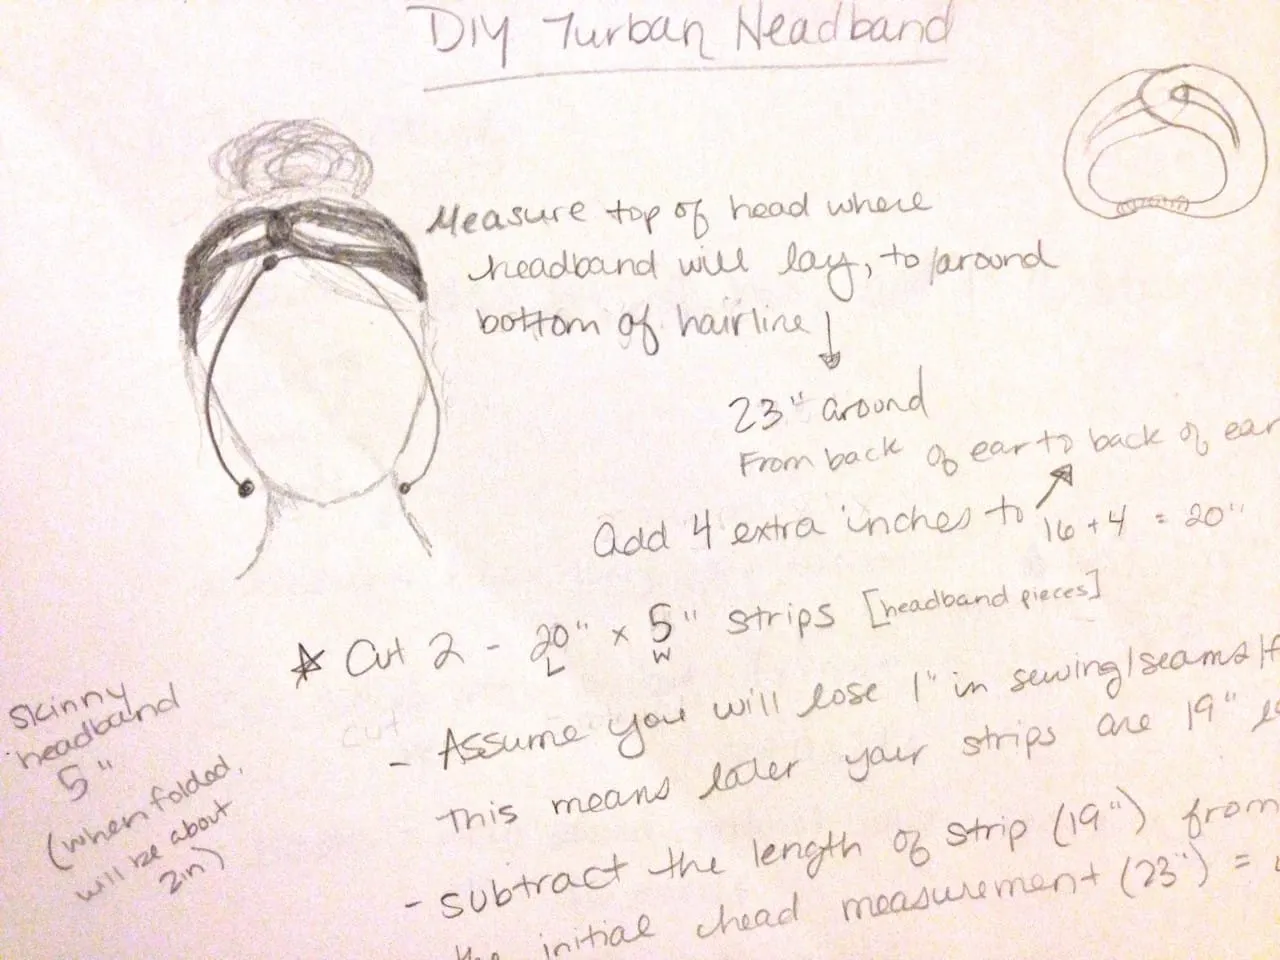 DIY Turban Headband
Measure top of head where
headband will lay, to/around
bottom of hairline
23" around
From back of ear to back of ear
Add 4 extra inches to
16 + 4 = 20"
Cut 2 - 20" x 5" strips [headband pieces]
L W
cut
- Assume you will lose 1" in sewing/seams/
This means later your strips are 19"
- subtract the length of strip (19") from
the initial head measurement (23") =
skinny
headband
5"
(when folded,
will be about
2in)